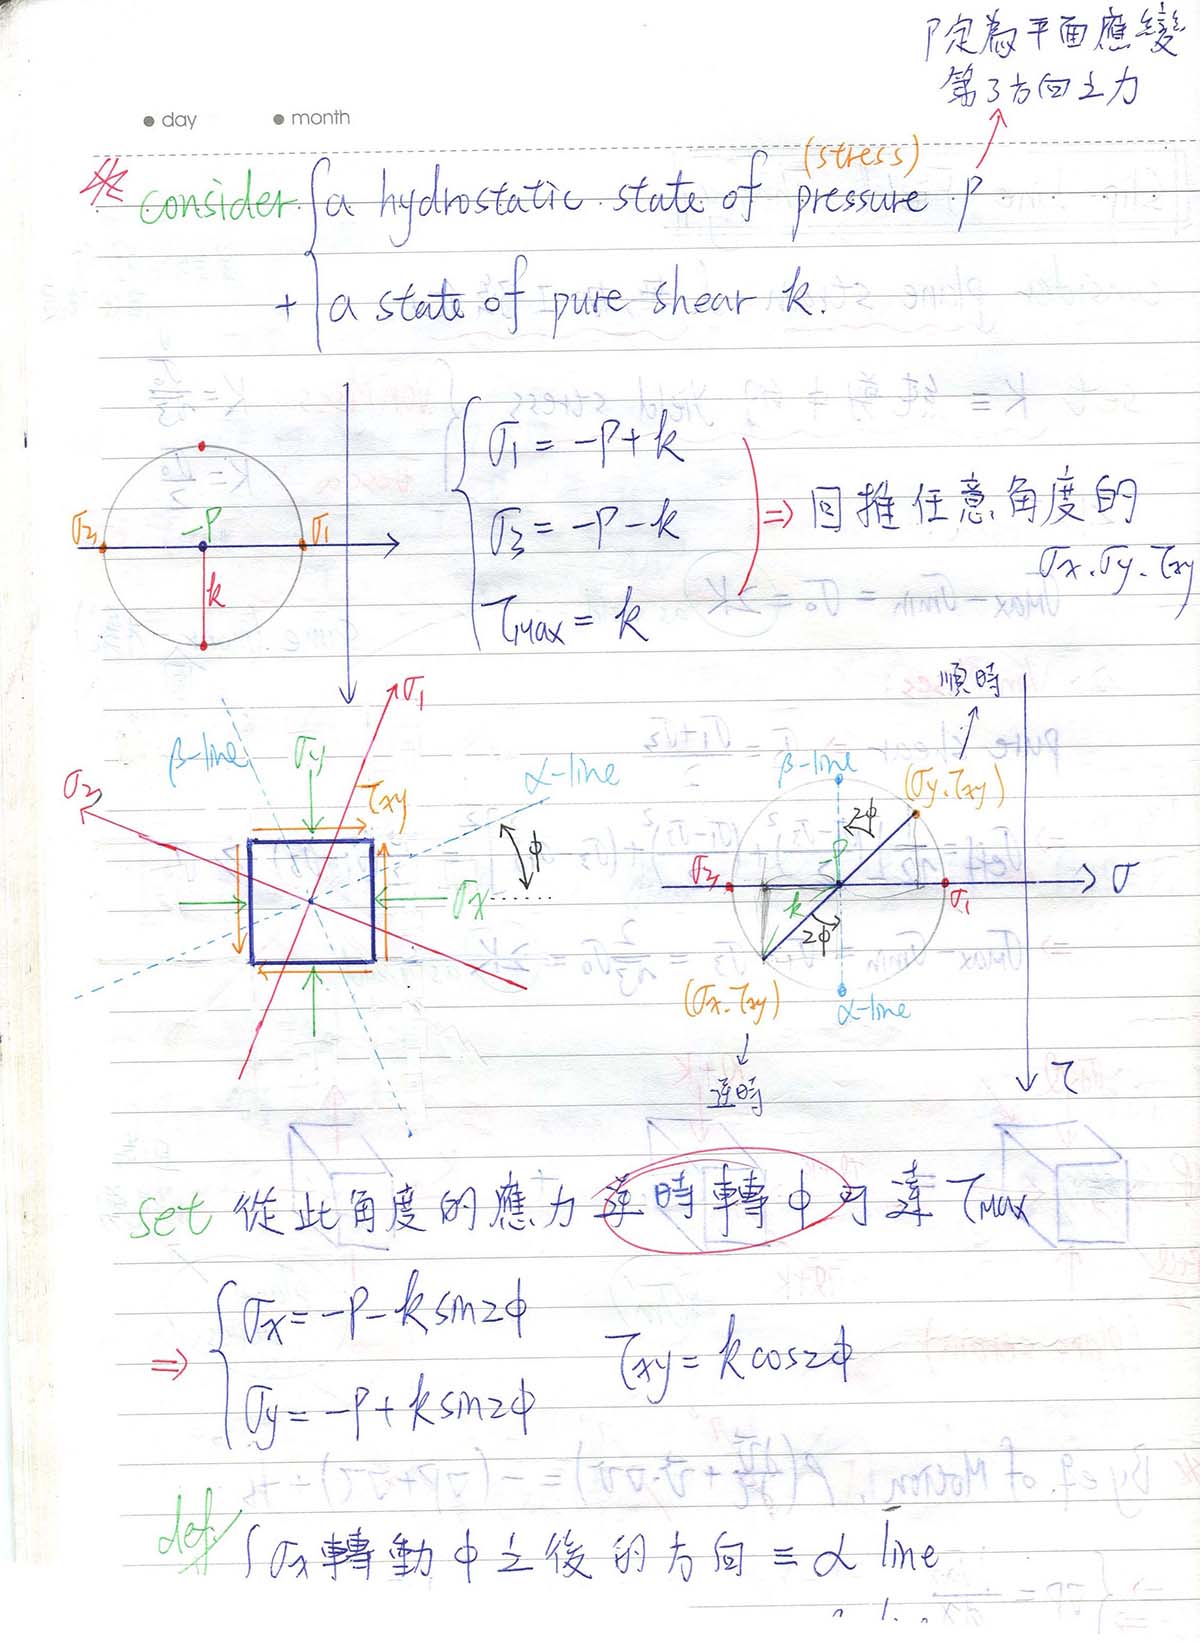 P定為平面應變
第3方向主力
day month
(stress)
※ consider { a hydrostatic state of pressure P
+ a state of pure shear k.
σ3 -P σ1
k
σ1 = -P+k
σ3 = -P-k
τmax = k
⇒ 回推任意角度的
σx.σy.τxy
順時
σ1
β-line σy α-line
σ3 τxy
φ
σx
β-line (σy.τxy)
2φ
-P
σ3 σ1 σ
k
2φ
(σx.τxy) α-line
逆時
τ
set 從此角度的應力逆時轉φ可達τmax
⇒ { σx = -P-k sin2φ
τxy = k cos2φ
σy = -P+k sin2φ
def { σx轉動φ之後的方向 ≡ α line